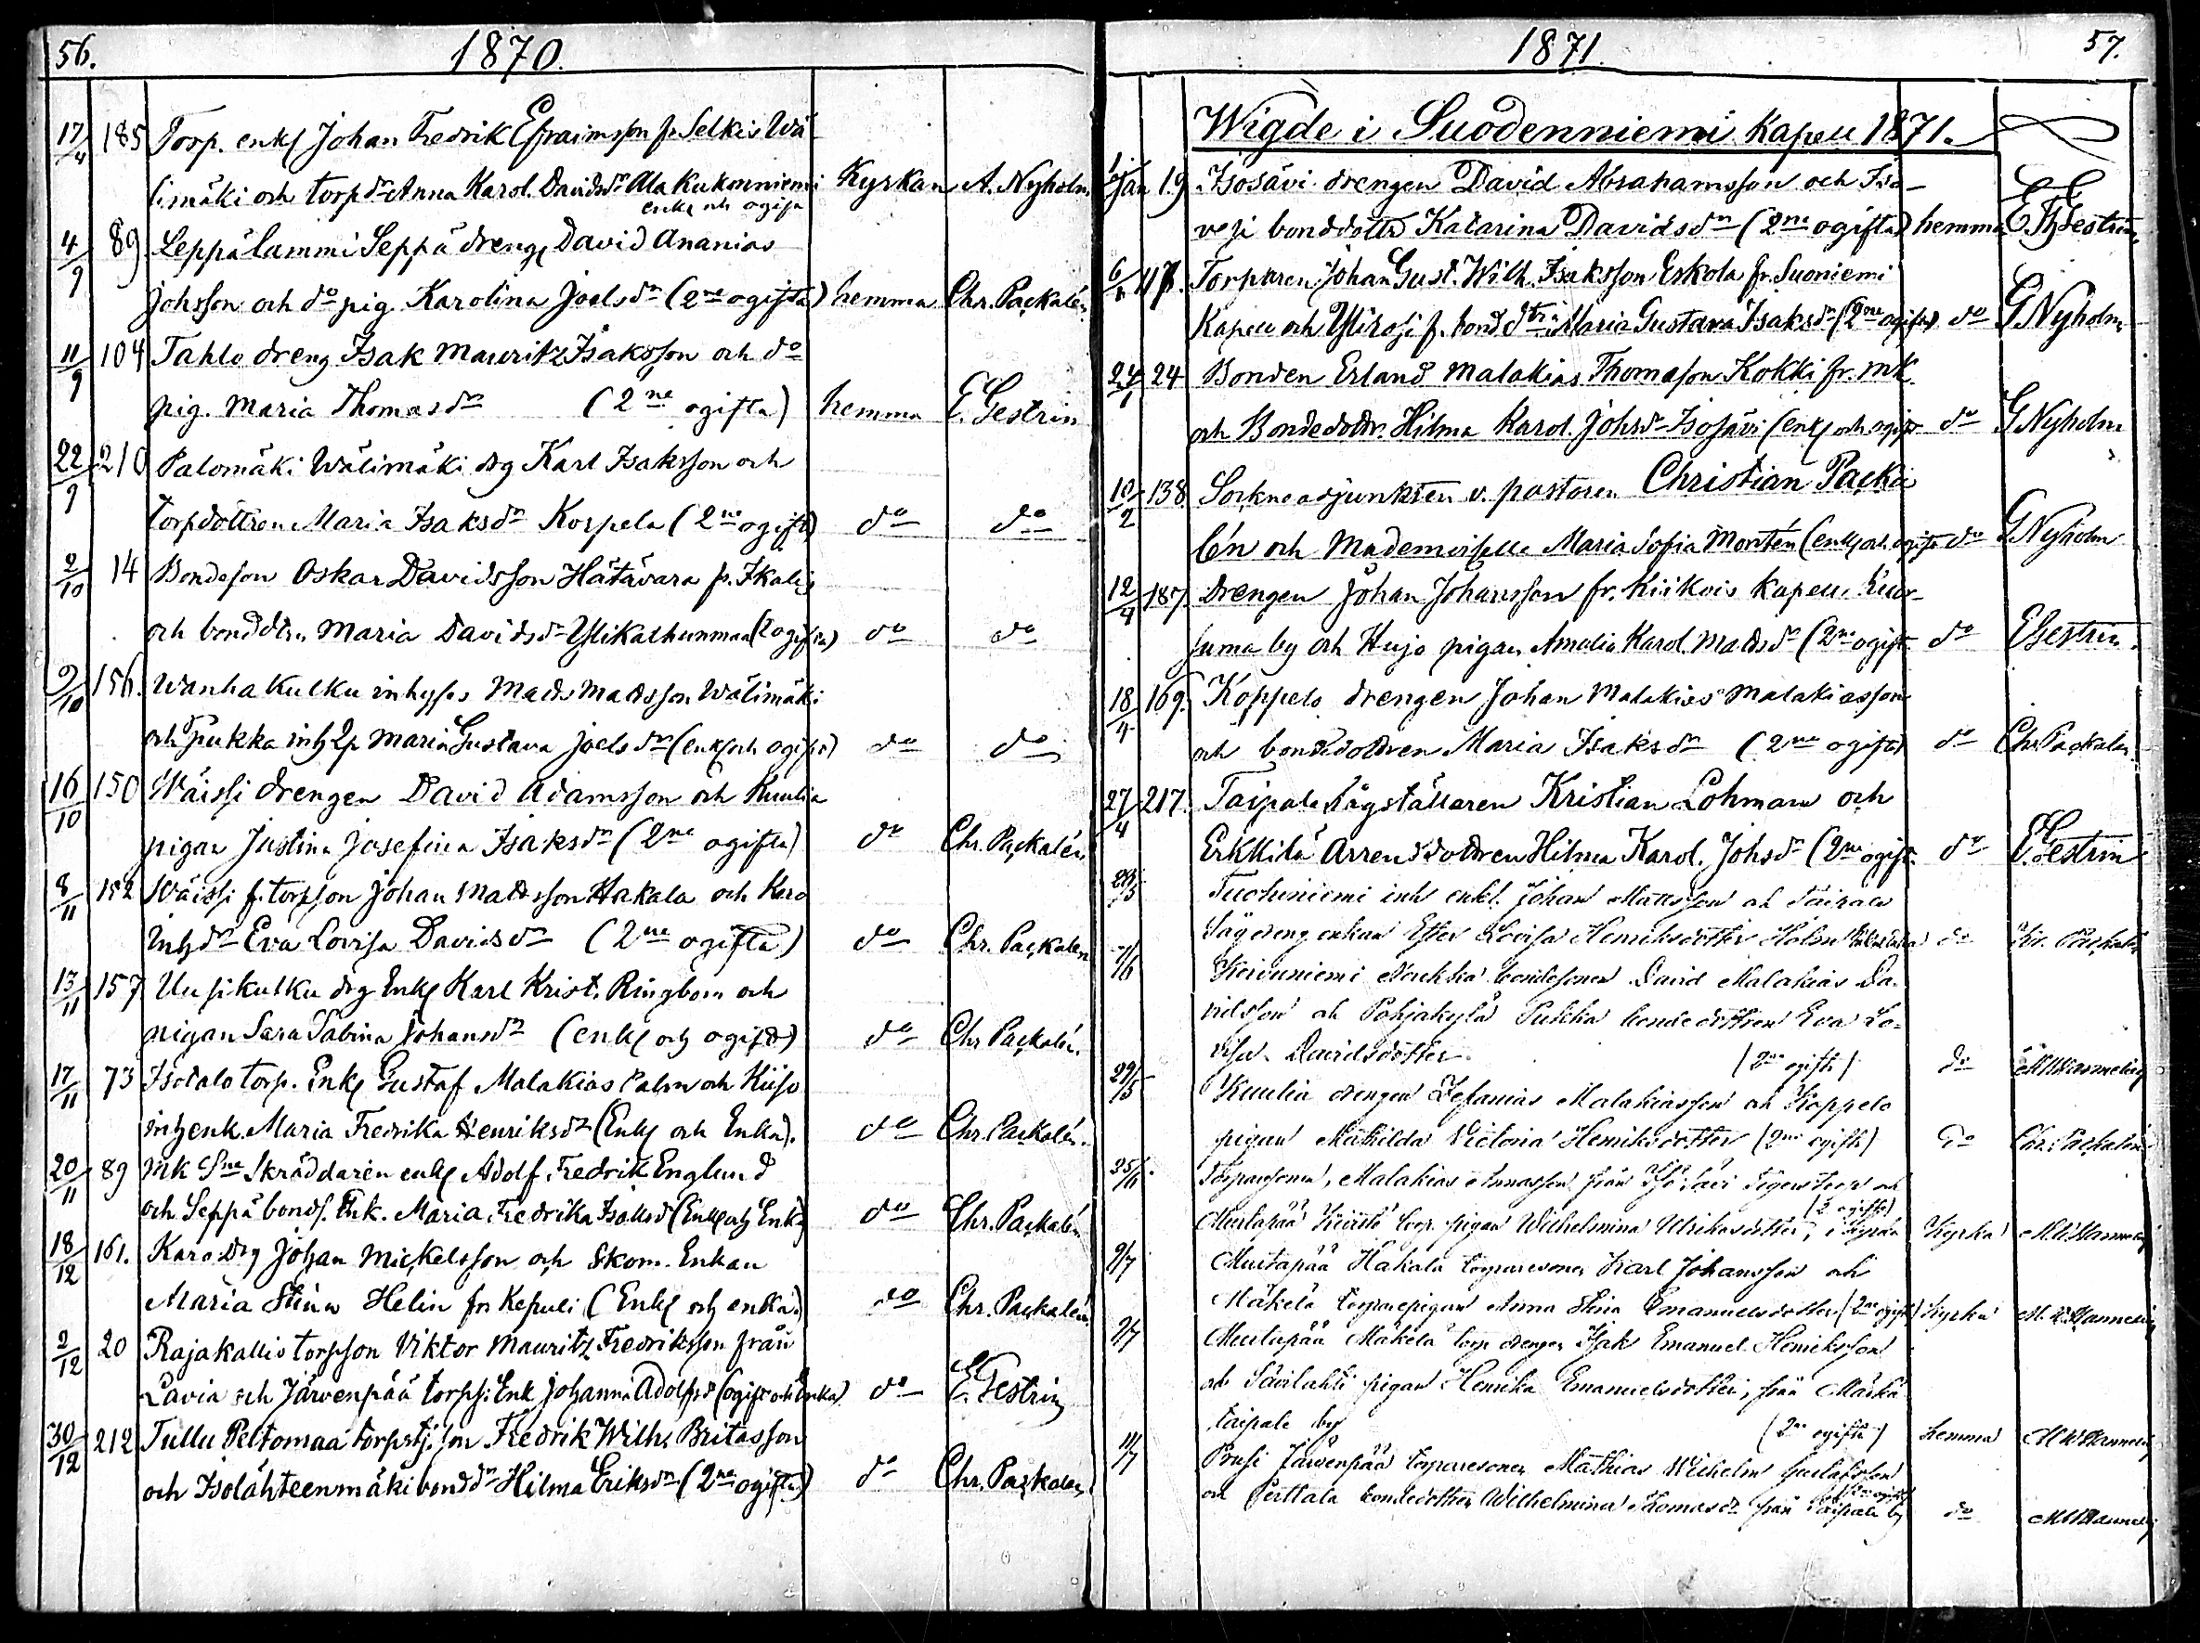 56.
1870.
17/4 185 Torp. enkl Johan Fredrik Efraimsson fr. Selkis Wä-
limäki och torpdr Anna Karol. Davidsdr Ala Kukonniemi Kyrkan A. Nyholm
enkl och ogifta
4/9 89 Leppälammi Seppä dreng David Ananias
Johsson och do pig. Karolina Joelsdr (2ne ogifta) hemma Chr. Packalén
11/9 104 Tahlo dreng Isak Mauritz Isaksson och do
pig. Maria Thomasdr (2ne ogifta) hemma E. Gestrin
22/9 210 Palomäki Wälimäki drg Karl Isaksson och
torpdottren Maria Isaksdr Korpela (2ne ogifta) do do
2/10 14 Bondeson Oskar Davidsson Hätävara fr. Ikalis
och bonddtrn Maria Davidsdr Ylikalhunmaa (2 ogifta) do do
9/10 156. Wanhakulku inhyses Mads Madsson Wälimäki
och Pukka inh Maria Gustava Joelsdr (enkl och ogifta) do do
16/10 150 Wäissi drengen David Adamsson och Kuulia
pigan Justina Josefina Isaksdr (2ne ogifta) do Chr. Packalén
8/11 152 Wäissi f. torpson Johan Madsson Hakala och Karo
inhdr Eva Lovisa Davidsdr (2ne ogifta) do Chr. Packalén
13/11 157 Uusikulku drg Enkl Karl Krist. Ringbom och
pigan Sara Sabina Johansdr (enkl och ogifta) do Chr Packalén.
17/11 73 Isotalo torp. Enkl Gustaf Malakias Palm och Kiiso
inhenk. Maria Fredrika Henriksdr (Enkl och Enka). do Chr. Packalén.
20/11 89 mk Skräddaren enkl Adolf Fredrik Englund
och Seppä bonds. Enk. Maria Fredrika Isaksdr (Enkl och Enka) do Chr. Packalén
18/12 161. Karo drg Johan Mickelsson och Skom. Enkan
Maria Stina Helin fr Kepuli (Enkl och enka) do Chr. Packalén.
2/12 20 Rajakallio torpson Viktor Mauritz Fredriksson från
Lavia och Järvenpää torps. Enk Johanna Adolfsdr (ogift och Enka) do E. Gestrin
30/12 212 Tullu Peltomaa torpstj. son Fredrik Wilh. Britasson
och Isolähteenmäki bonddr Hilma Eriksdr (2ne ogifta) do Chr. Packalén
1871.
57.
Wigde i Suodenniemi Kapell 1871.
1/jan 19 Isosävi drengen David Abrahamsson och Iso-
vesi bonddottr Katarina Davidsdr (2ne ogifta) hemma E. Gestrin
6/1 117. Torparen Johan Gust. Wilh. Isaksson Eskola fr. Suoniemi
Kapell och Ylirosi f. bonddtrn Maria Gustava Isaksdr (2ne ogifta) do G Nyholm
24/1 24 Bonden Erland Malakias Thomasson Kokki fr. mk
och Bondedottr. Hilma Karol. Johsdr Isosävi (enkl och ogift do G Nyholm
10/2 138. Sockneadjunkten v. pastoren Christian Packa-
lén och Mademoiselle Maria Sofia Montén (enkl och ogift do G Nyholm
12/4 187. Drengen Johan Johansson fr. Kiikois Kapell Kuor-
suma by och Hujo pigan Amalia Karol. Madsdr (2ne ogift do E Gestrin.
18/4 169. Koppelo drengen Johan Malakias Malakiasson
och bondedottren Maria Isaksdr (2ne ogifta) do Chr Packalén
27/4 217. Taipale Lågställaren Kristian Lohman och
Erkkilä Arrendedottren Hilma Karol. Johsdr (2ne ogift do E. Gestrin
28/5 Tuckiniemi inh enkl. Johan Mattsson och Taipale
Sågdreng enkan Ester Lovisa Henriksdotter Holm do Chr. Packalén
7/6 Koivuniemi Naukka bondesonen David Malakias Da-
vidsson och Pohjakylä Pukka bondedottren Eva Lo-
visa Davidsdotter (2ne ogifta) do M W Hannelius
29/5 Kuulia drengen Zefanias Malakiasson och Koppelo
pigan Mathilda Victoria Henriksdotter (2ne ogifta) do Chr. Packalén
25/6 Torparsonen, Malakias Annasson från torp och
(2 ogifta)
Mustapää Kiviistö torp. pigan Wilhelmina Ulrikasdotter, i kyrkan Kyrka M. W Hannelius
2/7 Mustapää Hakala torparesonen Karl Johansson och
Mäkelä torparepigan Anna Stina Emanuelsdotter (2ne ogifta) Kyrka M. W. Hannelius
2/7 Mustapää Mäkelä torp drengen Isak Emanuel Henriksson
och Savilahti pigan Henrika Emanuelsdotter, från Märkä-
taipale by (2ne ogifta) hemma M W Hannelius
11/7 Prusi Järvenpää torparesonen Mathias Wilhelm Gustafsson
och Perttala bondedotter Wilhelmina Thomasdr från Taipale by do M W Hannelius